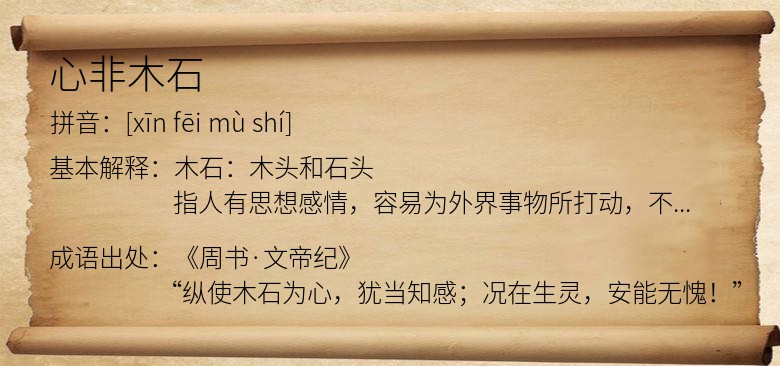 心非木石
拼音：[xīn fēi mù shí]
基本解释：木石：木头和石头
指人有思想感情，容易为外界事物所打动，不...
成语出处：《周书·文帝纪》
“纵使木石为心，犹当知感；况在生灵，安能无愧！”